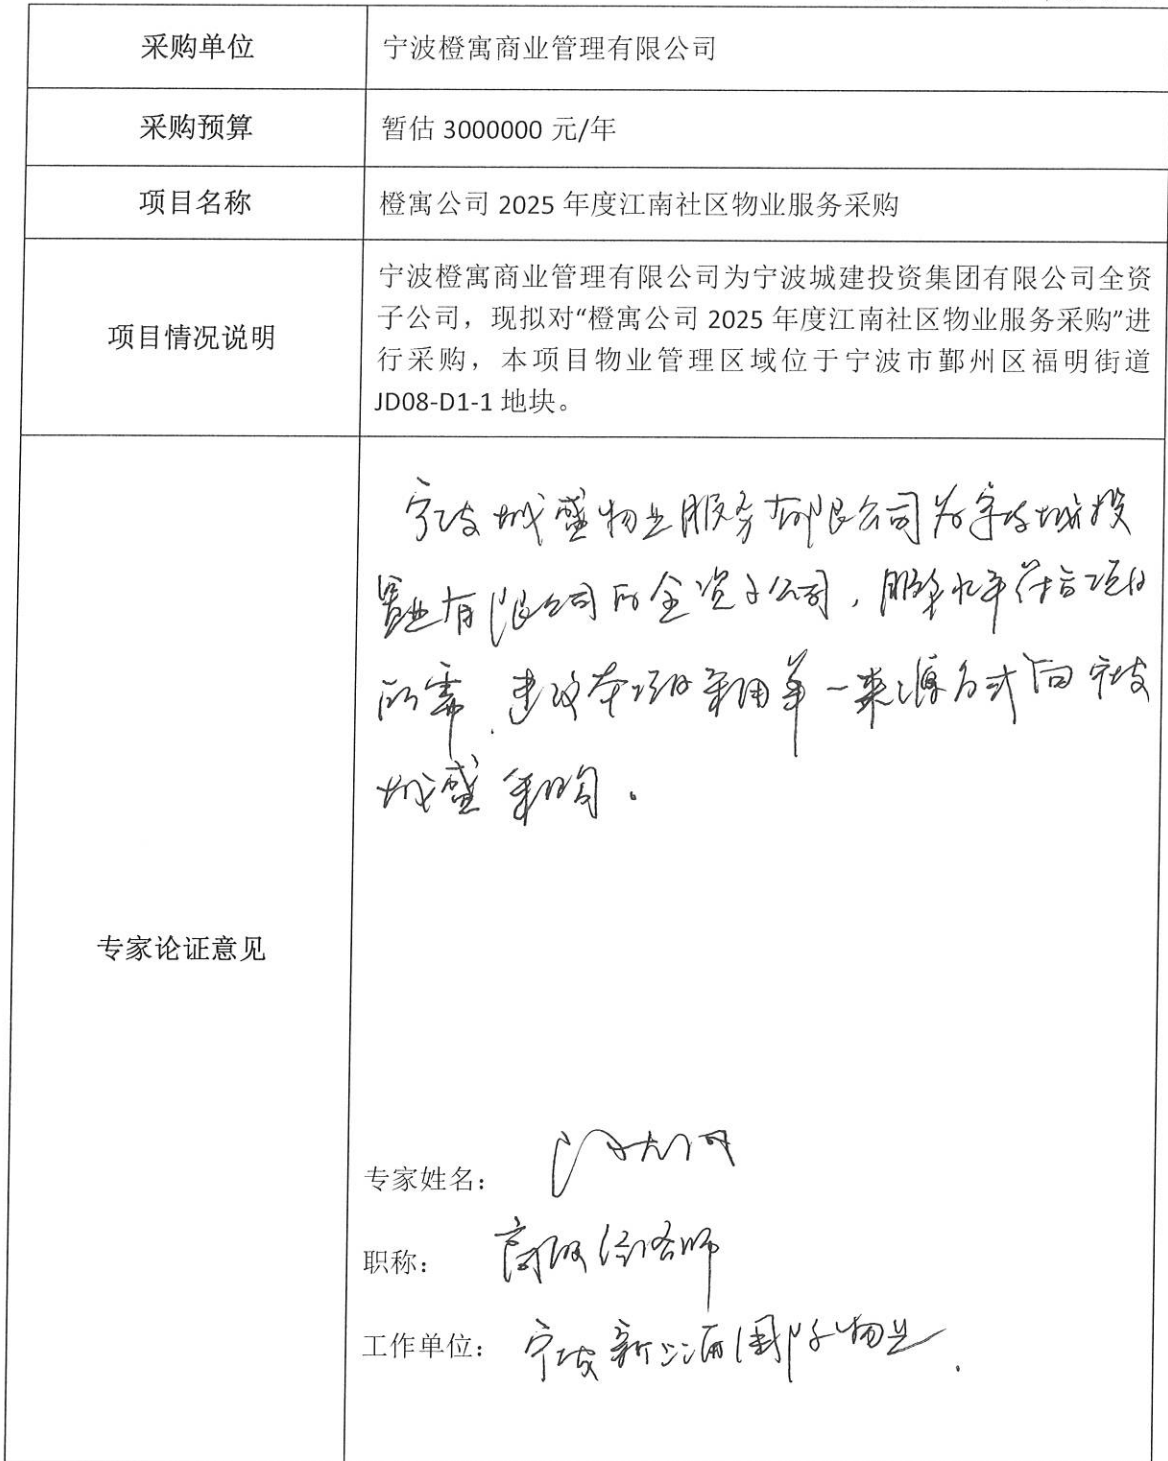 采购单位
宁波橙寓商业管理有限公司
采购预算
暂估 3000000 元/年
项目名称
橙寓公司 2025 年度江南社区物业服务采购
项目情况说明
宁波橙寓商业管理有限公司为宁波城建投资集团有限公司全资
子公司，现拟对“橙寓公司 2025 年度江南社区物业服务采购”进
行采购，本项目物业管理区域位于宁波市鄞州区福明街道
JD08-D1-1 地块。
专家论证意见
宁波城盛物业服务有限公司为宁波城投
置业有限公司的全资子公司，服务水平符合项目
所需，建议本项目采用单一来源方式向宁波
城盛采购。
专家姓名：
职称： 高级经济师
工作单位： 宁波新上海国际物业